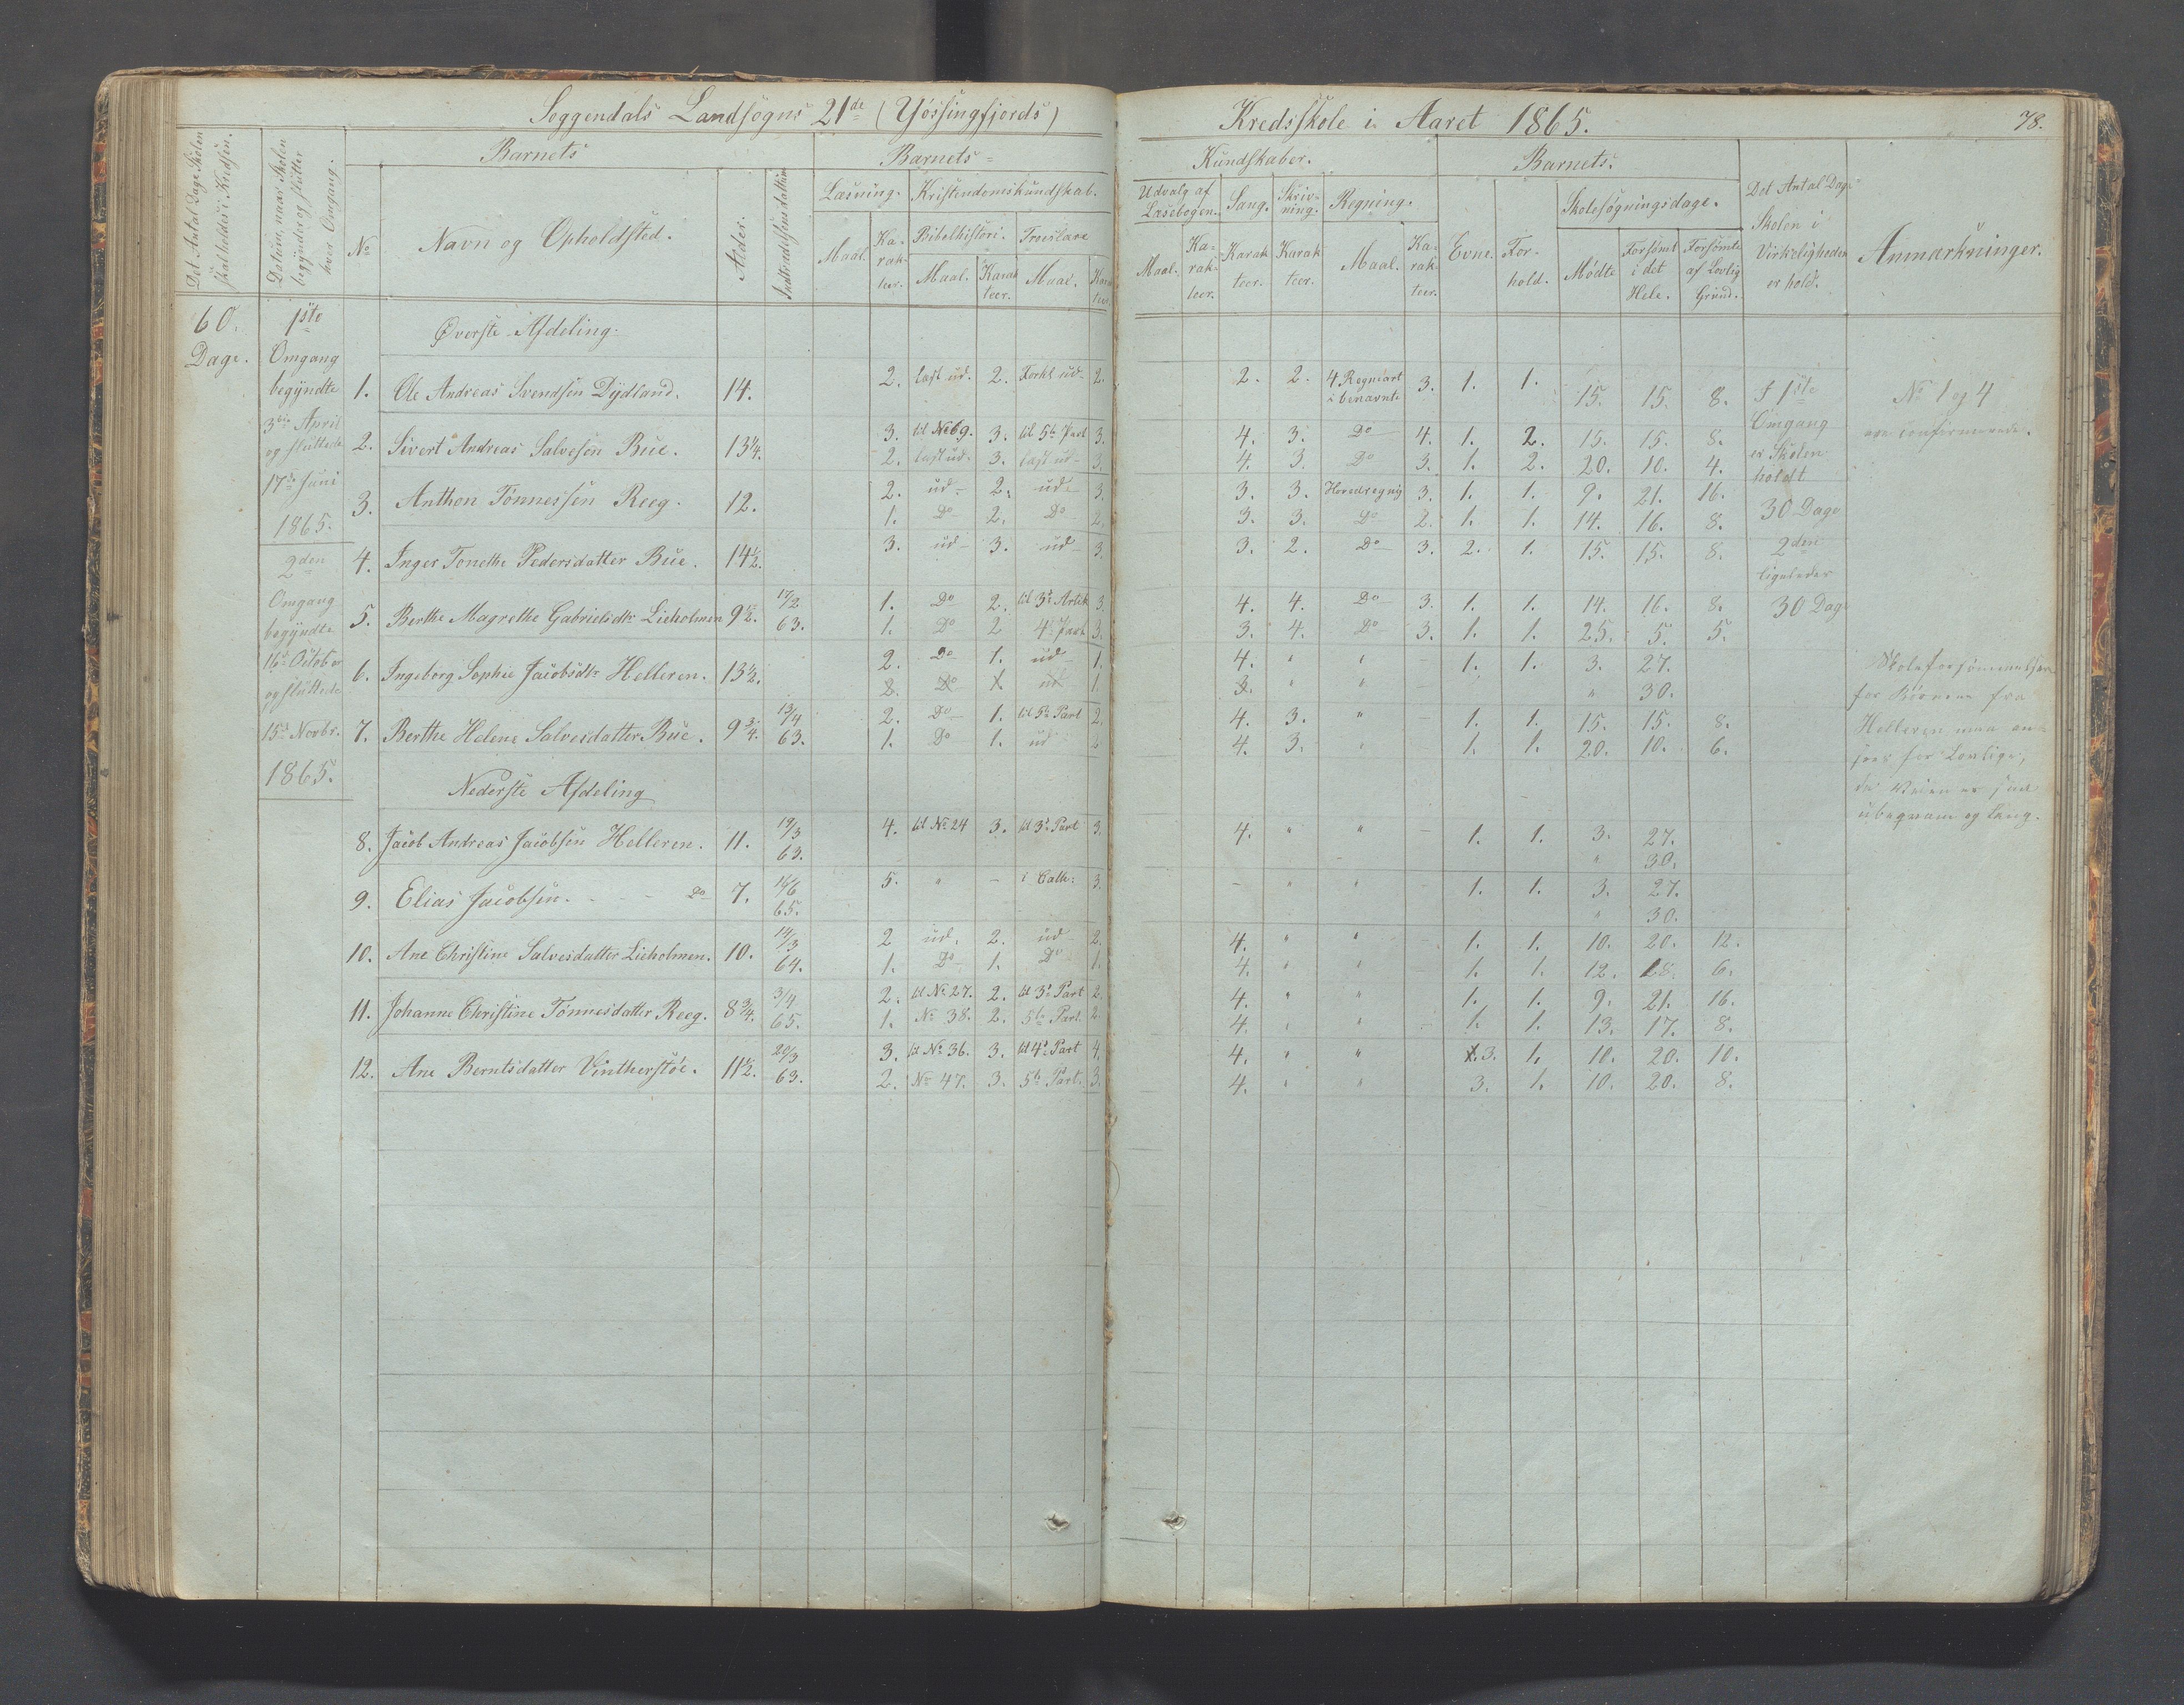 Soggendals Landsogns 21de (Jøssingfjords) Kredsskole i Aaret 1865. 78.
Det Antal Dage Skolen skal holdes i Kredsen.
Datum, naar Skolen begynder og slutter hver Omgang.
Barnets
Barnets
Kundskaber.
Barnets.
No
Navn og Opholdsted.
Alder.
Indtrædelsesdatum
Læsning. Kristendomskundskab.
Maal. Ka-rak-teer. Bibelhistori. Troeslære
Maal. Karak teer. Maal. Karak teer.
Udvalg af Læsebogen. Sang. Skriv-ning. Regning.
Maal. Ka-rak-teer. Karak teer. Karak teer. Maal. Ka-rak-teer.
Evne. For-hold. Skolesøgningsdage.
Mødte Forsømt i det Hele. Forsømte af Lovlig Grund.
Det Antal Dage Skolen i Virkeligheden er holdt.
Anmærkninger.
60. Dage.
1ste Omgang begyndte 3die April og sluttede 17de Juni 1865.
2den Omgang begyndte 16de Octob er og sluttede 15de Novbr. 1865.
Øverste Afdeling.
1. Ole Andreas Svendsen Dydland. 14. 2. læst ud. 2. Forkl ud 2. 2. 2. 4 Regneart i benævnte 3. 1. 1. 15. 15. 8.
2. Sivert Andreas Salvesen Bue. 13¼. 3. til No 69. 3. til 5te Part 3. 4. 3. Do 4. 1. 2. 15. 15. 8.
2. læst ud. 3. læst ud 3. 4. 3. Do 3. 1. 2. 20. 10. 4.
3. Anthon Tønnessen Reeg. 12. 2. ud 2. ud 3. 3. 3. Hovedregnig 3. 1. 1. 9. 21. 16.
1. Do 2. Do 2. 3. 3. Do 2. 1. 1. 14. 16. 8.
4. Inger Tonethe Pedersdatter Bue. 14½. 3. ud 3. ud 3. 3. 2. Do 3. 2. 1. 15. 15. 8.
5. Berthe Magrethe Gabrielsdtr Lieholmen 9½. /2 63. 1. Do 2. til 3d Artik 3. 4. 4. Do 3. 1. 1. 14. 16. 8.
1. Do 2 4 Part 3. 3. 4. Do 3. 1. 1. 25. 5. 5.
6. Ingeborg Sophie Jacobsdtr Helleren. 13½. 2. Do 1. ud 1. 4. " " 1. 1. 3. 27.
2. Do 1. ud 1. 3. " " " 30.
7. Berthe Helene Salvesdatter Bue. 9¾. 13/4 63. 2. Do 1. til 5te Part 2. 4. 3. " 1. 1. 15. 15. 8.
1. Do 1. ud 2 4. 3. " 1. 1. 20. 10. 6.
Nederste Afdeling
8. Jacob Andreas Jacobsen Helleren. 11. 19/3 63. 4. til No 24 3. til 3d Part 3. 4. " " 1. 1. 3. 27.
" 30.
9. Elias Jacobsen. Do 7. /6 65. 5. " i Cath: 3. " " 1. 1. 3. 27.
" 30.
10. Ane Christine Salvesdatter Lieholmen. 10. 14/3 64. 2 ud. 2. ud 2. 4. " " 1. 1. 10. 20. 12.
1. Do 1. Do 1. 4. " " 1. 1. 12. 18. 6.
11. Johanne Christine Tønnesdatter Reeg. 8¾. 3/4 65. 2. til No 27. 2. til 3d Part 2. 4. " " 1. 1. 9. 21. 16.
1. No 38. 2. 5te Part. 2. 4. " " 1. 1. 13. 17. 8.
12. Ane Berntsdatter Vintherstøe. 11½. 20/3 63. 3. til No 36. 3. til 4d Part 4. 4. " " 3. 1. 10. 20. 10.
2. No 47. 3. 5te Part. 3. 4. " " 3. 1. 10. 20. 8.
I 1ste Omgang er Skolen holdt 30 Dage
2den ligeledes 30 Dage
No 1 og 4
ere confirmerede.
Skoleforsømmelsen
for Børnene fra
Helleren maa an-
sees for Lovlige,
da Veien er
ubeqvem og lang.